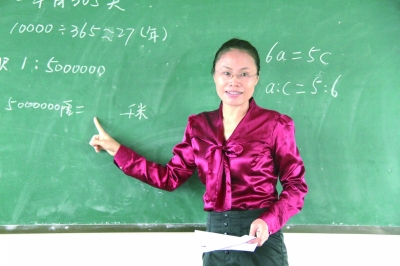 年有365天
10000÷365≈27(年)
1:5000000
5000000厘= 千米
6a=5c
a:c=5:6